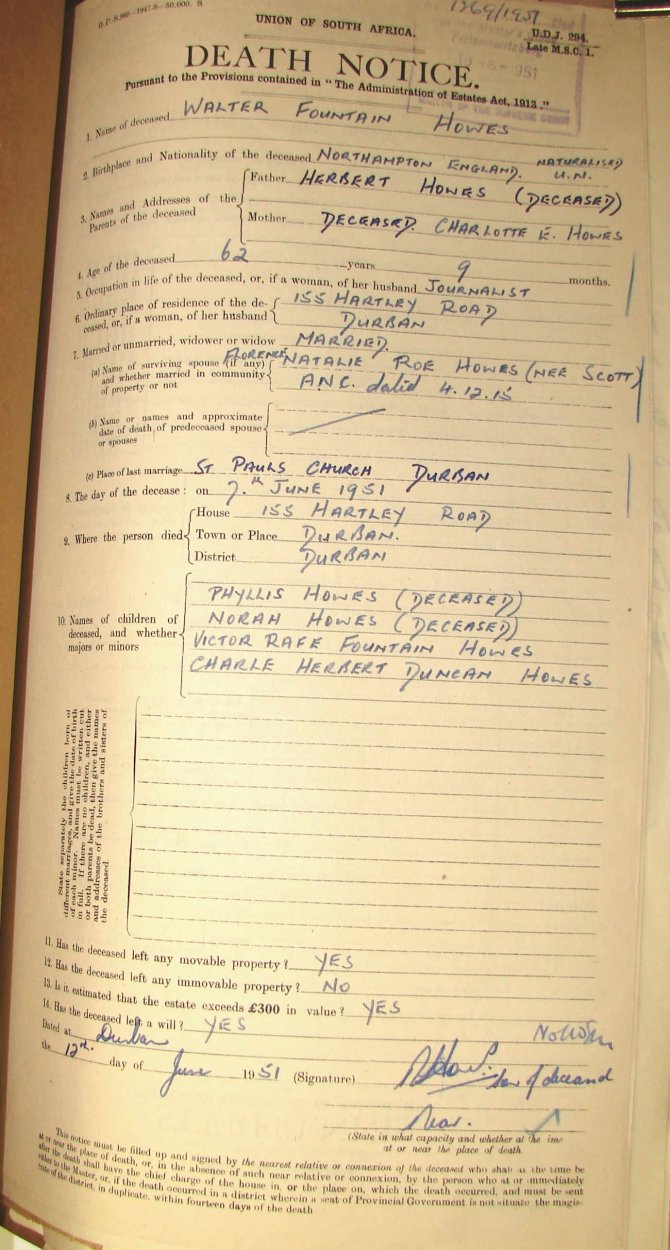 G.P. S.960—1947-8—50,000. S.
1369/1951
UNION OF SOUTH AFRICA.
U.D.J. 294.
Late M.S.C. 1.
DEATH NOTICE.
1951
Pursuant to the Provisions contained in "The Administration of Estates Act, 1913."
1. Name of deceased WALTER FOUNTAIN HOWES
2. Birthplace and Nationality of the deceased NORTHAMPTON ENGLAND. NATURALISED
U.N.
3. Names and Addresses of the Parents of the deceased
Father HERBERT HOWES (DECEASED)
Mother DECEASED. CHARLOTTE E. HOWES
4. Age of the deceased 62 years 9 months.
5. Occupation in life of the deceased, or, if a woman, of her husband JOURNALIST
6. Ordinary place of residence of the de- 155 HARTLEY ROAD
ceased, or, if a woman, of her husband DURBAN
7. Married or unmarried, widower or widow MARRIED.
(a) Name of surviving spouse (if any) FLORENCE NATALIE ROE HOWES (NEE SCOTT)
and whether married in community A.N.C. dated 4.12.15
of property or not
(b) Name or names and approximate
date of death of predeceased spouse
or spouses
(c) Place of last marriage ST PAULS CHURCH DURBAN
8. The day of the decease: on 7.th JUNE 1951
9. Where the person died
House 155 HARTLEY ROAD
Town or Place DURBAN.
District DURBAN
10. Names of children of
deceased, and whether
majors or minors
PHYLLIS HOWES (DECEASED)
NORAH HOWES (DECEASED)
VICTOR RAFE FOUNTAIN HOWES
CHARLE HERBERT DUNCAN HOWES
State separately the children born of
different marriages, and give the date of birth
of each minor. Names must be written out
in full. If there are no children, and either
or both parents be dead, then give the names
and addresses of the brothers and sisters of
the deceased.
11. Has the deceased left any movable property? YES
12. Has the deceased left any immovable property? NO
13. Is it estimated that the estate exceeds £300 in value? YES
14. Has the deceased left a will? YES
Dated at Durban
the 12th. day of June 1951 (Signature)
of deceased
Near.
(State in what capacity and whether at the time
at or near the place of death.
This notice must be filled up and signed by the nearest relative or connexion of the deceased who shall at the time be
at or near the place of death, or, in the absence of such near relative or connexion, by the person who at or immediately
after the death shall have the chief charge of the house in, or the place on, which the death occurred, and must be sent
either to the Master, or, if the death occurred in a district wherein a seat of Provincial Government is not situate the magis-
trate of the district, in duplicate, within fourteen days of the death